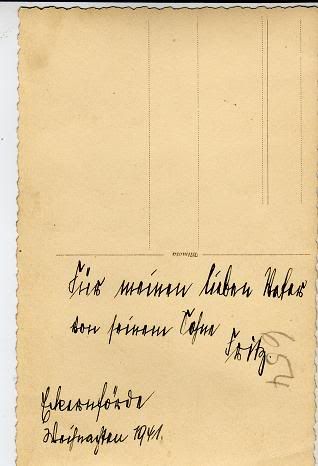 Mimosa
Für meinen lieben Vater
von seinem Sohne
Fritz.
654
Eckernförde
Weihnachten 1941.